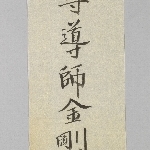 導師金剛